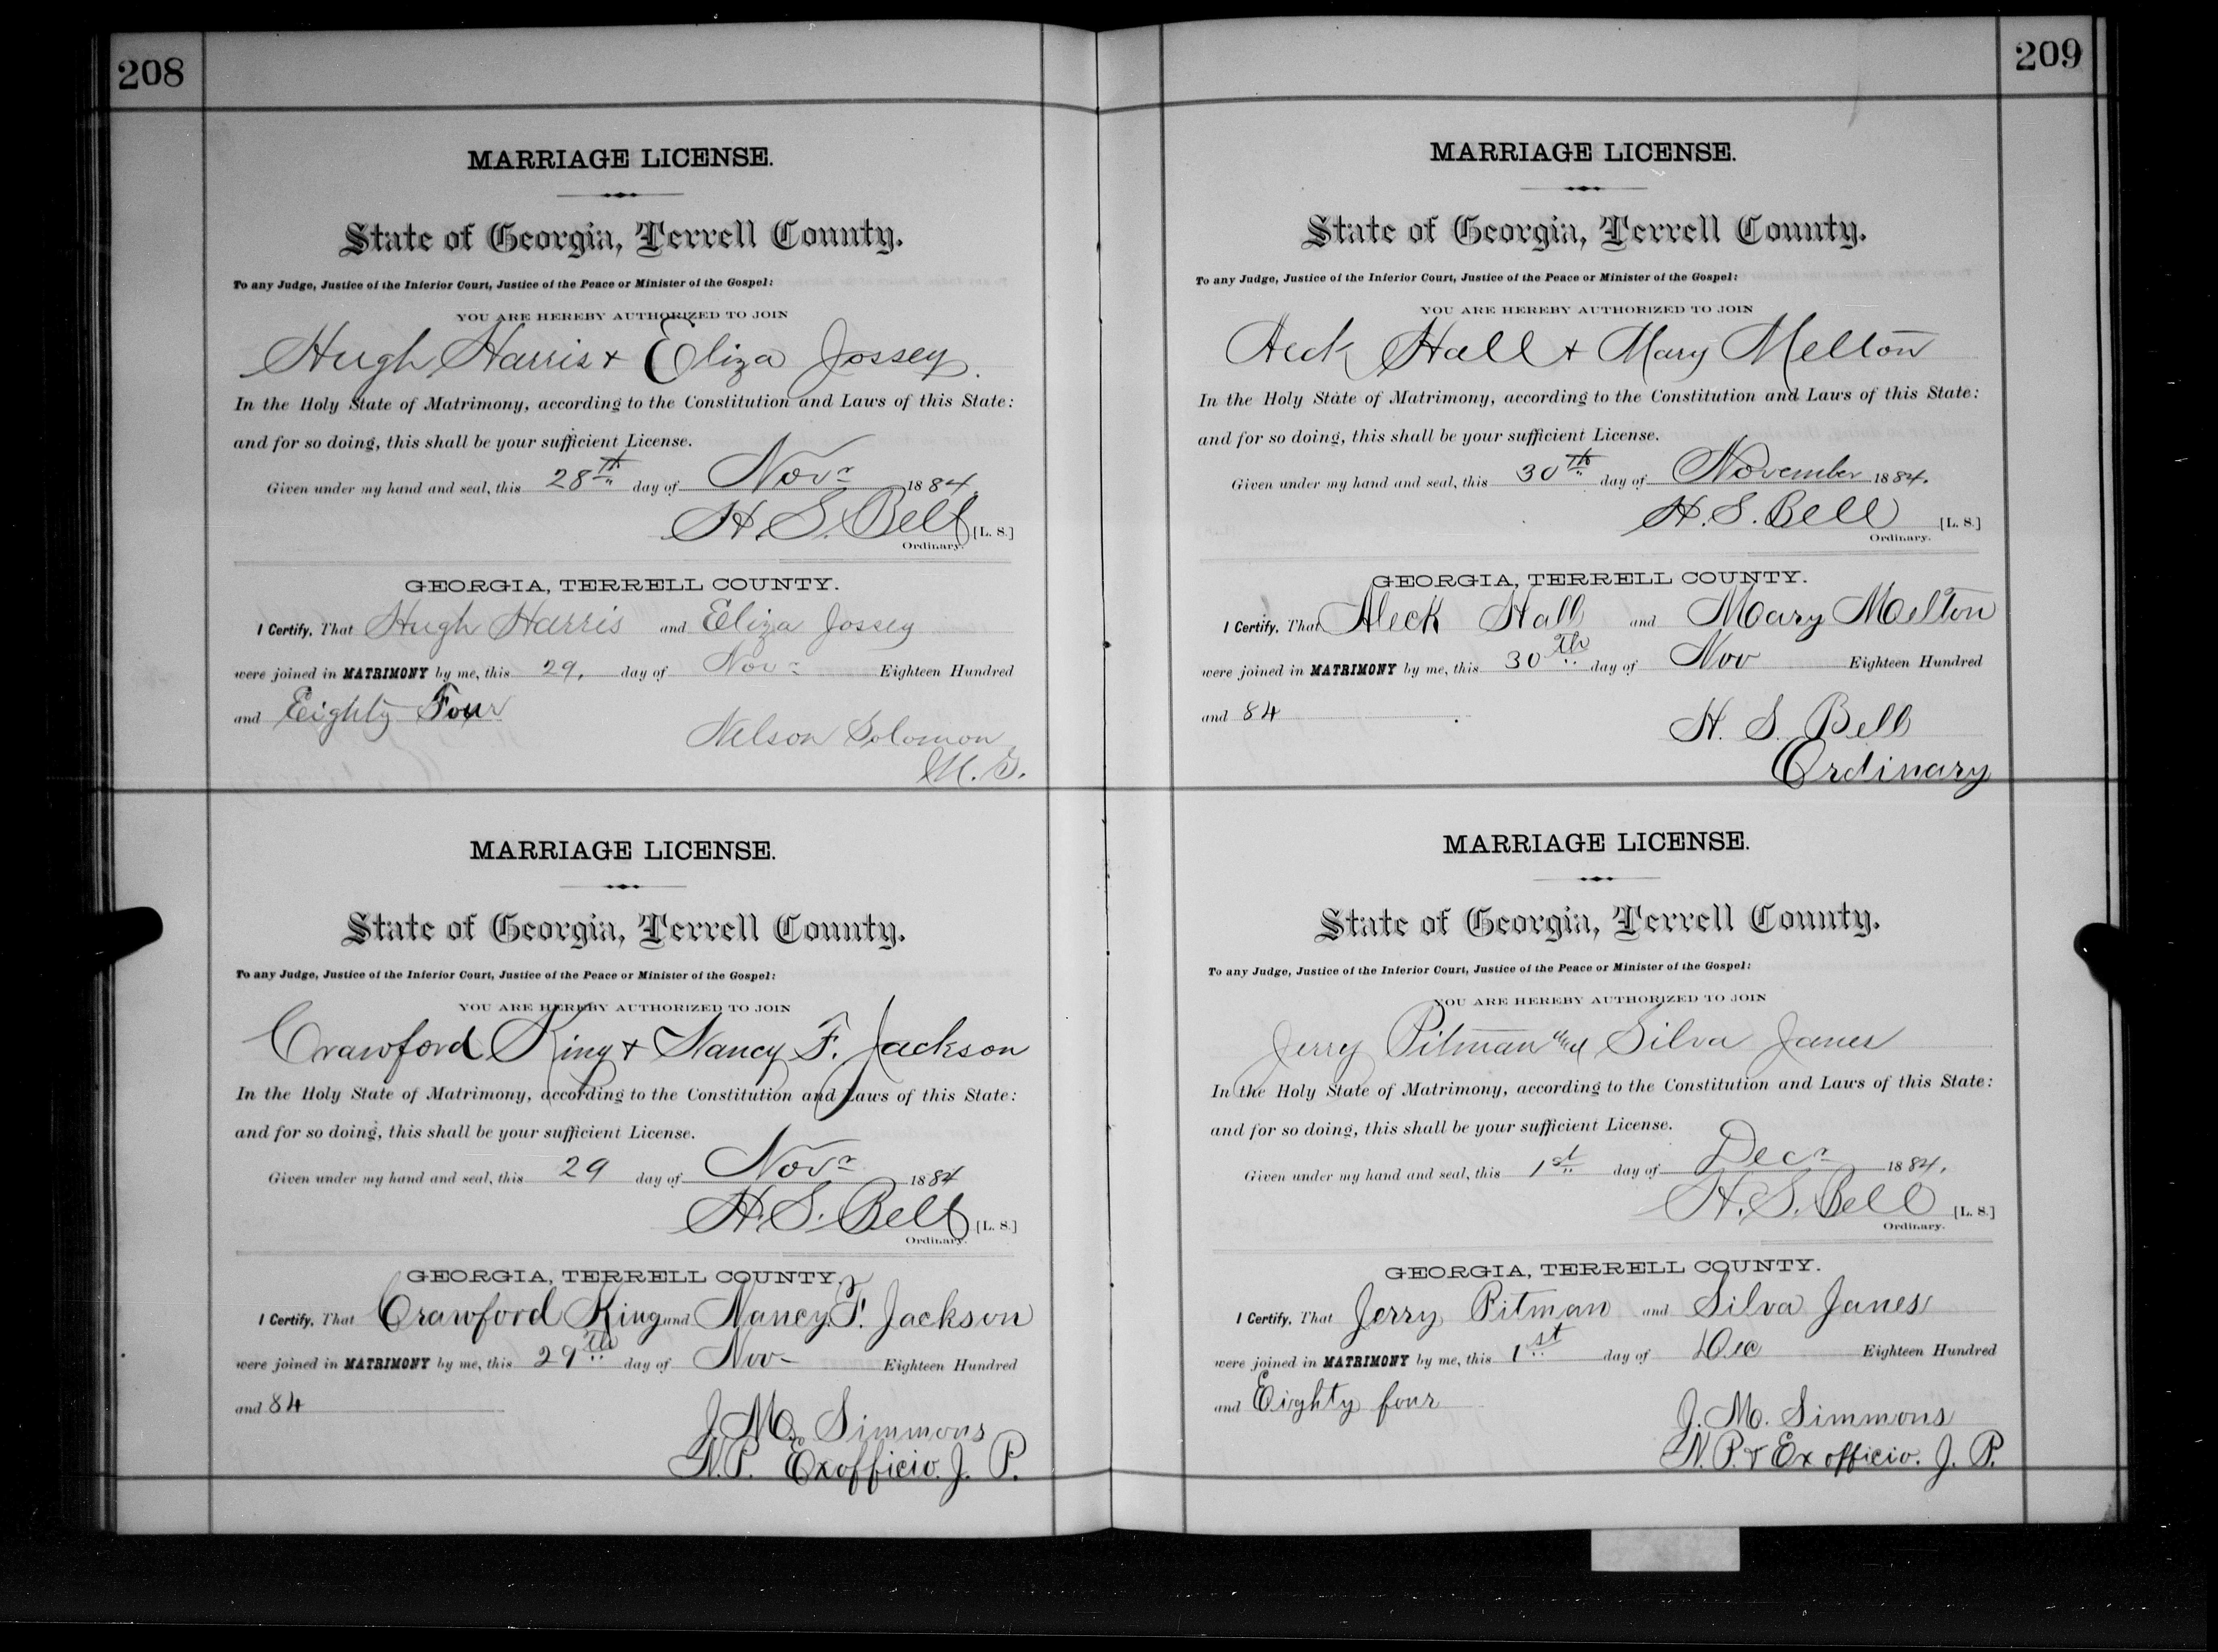 208
MARRIAGE LICENSE.
State of Georgia, Terrell County.
To any Judge, Justice of the Inferior Court, Justice of the Peace or Minister of the Gospel:
YOU ARE HEREBY AUTHORIZED TO JOIN
Hugh Harris + Eliza Jossey.
In the Holy State of Matrimony, according to the Constitution and Laws of this State:
and for so doing, this shall be your sufficient License.
Given under my hand and seal, this 28th day of Novr 1884
H. S. Bell [L. S.]
Ordinary.
GEORGIA, TERRELL COUNTY.
I Certify, That Hugh Harris and Eliza Jossey
were joined in MATRIMONY by me, this 29, day of Novr Eighteen Hundred
and Eighty Four
Nelson Solomon
M. G.
MARRIAGE LICENSE.
State of Georgia, Terrell County.
To any Judge, Justice of the Inferior Court, Justice of the Peace or Minister of the Gospel:
YOU ARE HEREBY AUTHORIZED TO JOIN
Crawford King + Nancy F. Jackson
In the Holy State of Matrimony, according to the Constitution and Laws of this State:
and for so doing, this shall be your sufficient License.
Given under my hand and seal, this 29 day of Novr 1884
H. S. Bell [L. S.]
Ordinary.
GEORGIA, TERRELL COUNTY.
I Certify, That Crawford King and Nancy F. Jackson
were joined in MATRIMONY by me, this 29th day of Nov Eighteen Hundred
and 84
J. M. Simmons
N. P. Exofficio. J. P.
209
MARRIAGE LICENSE.
State of Georgia, Terrell County.
To any Judge, Justice of the Inferior Court, Justice of the Peace or Minister of the Gospel:
YOU ARE HEREBY AUTHORIZED TO JOIN
Aleck Hall + Mary Melton
In the Holy State of Matrimony, according to the Constitution and Laws of this State:
and for so doing, this shall be your sufficient License.
Given under my hand and seal, this 30th day of November 1884.
H. S. Bell [L. S.]
Ordinary.
GEORGIA, TERRELL COUNTY.
I Certify, That Aleck Hall and Mary Melton
were joined in MATRIMONY by me, this 30th day of Nov Eighteen Hundred
and 84
H. S. Bell
Ordinary
MARRIAGE LICENSE.
State of Georgia, Terrell County.
To any Judge, Justice of the Inferior Court, Justice of the Peace or Minister of the Gospel:
YOU ARE HEREBY AUTHORIZED TO JOIN
Jerry Pitman and Silva Janes
In the Holy State of Matrimony, according to the Constitution and Laws of this State:
and for so doing, this shall be your sufficient License.
Given under my hand and seal, this 1st day of Decr 1884.
H. S. Bell [L. S.]
Ordinary.
GEORGIA, TERRELL COUNTY.
I Certify, That Jerry Pitman and Silva Janes
were joined in MATRIMONY by me, this 1st day of Dec Eighteen Hundred
and Eighty four
J. M. Simmons
N. P. & Ex officio. J. P.